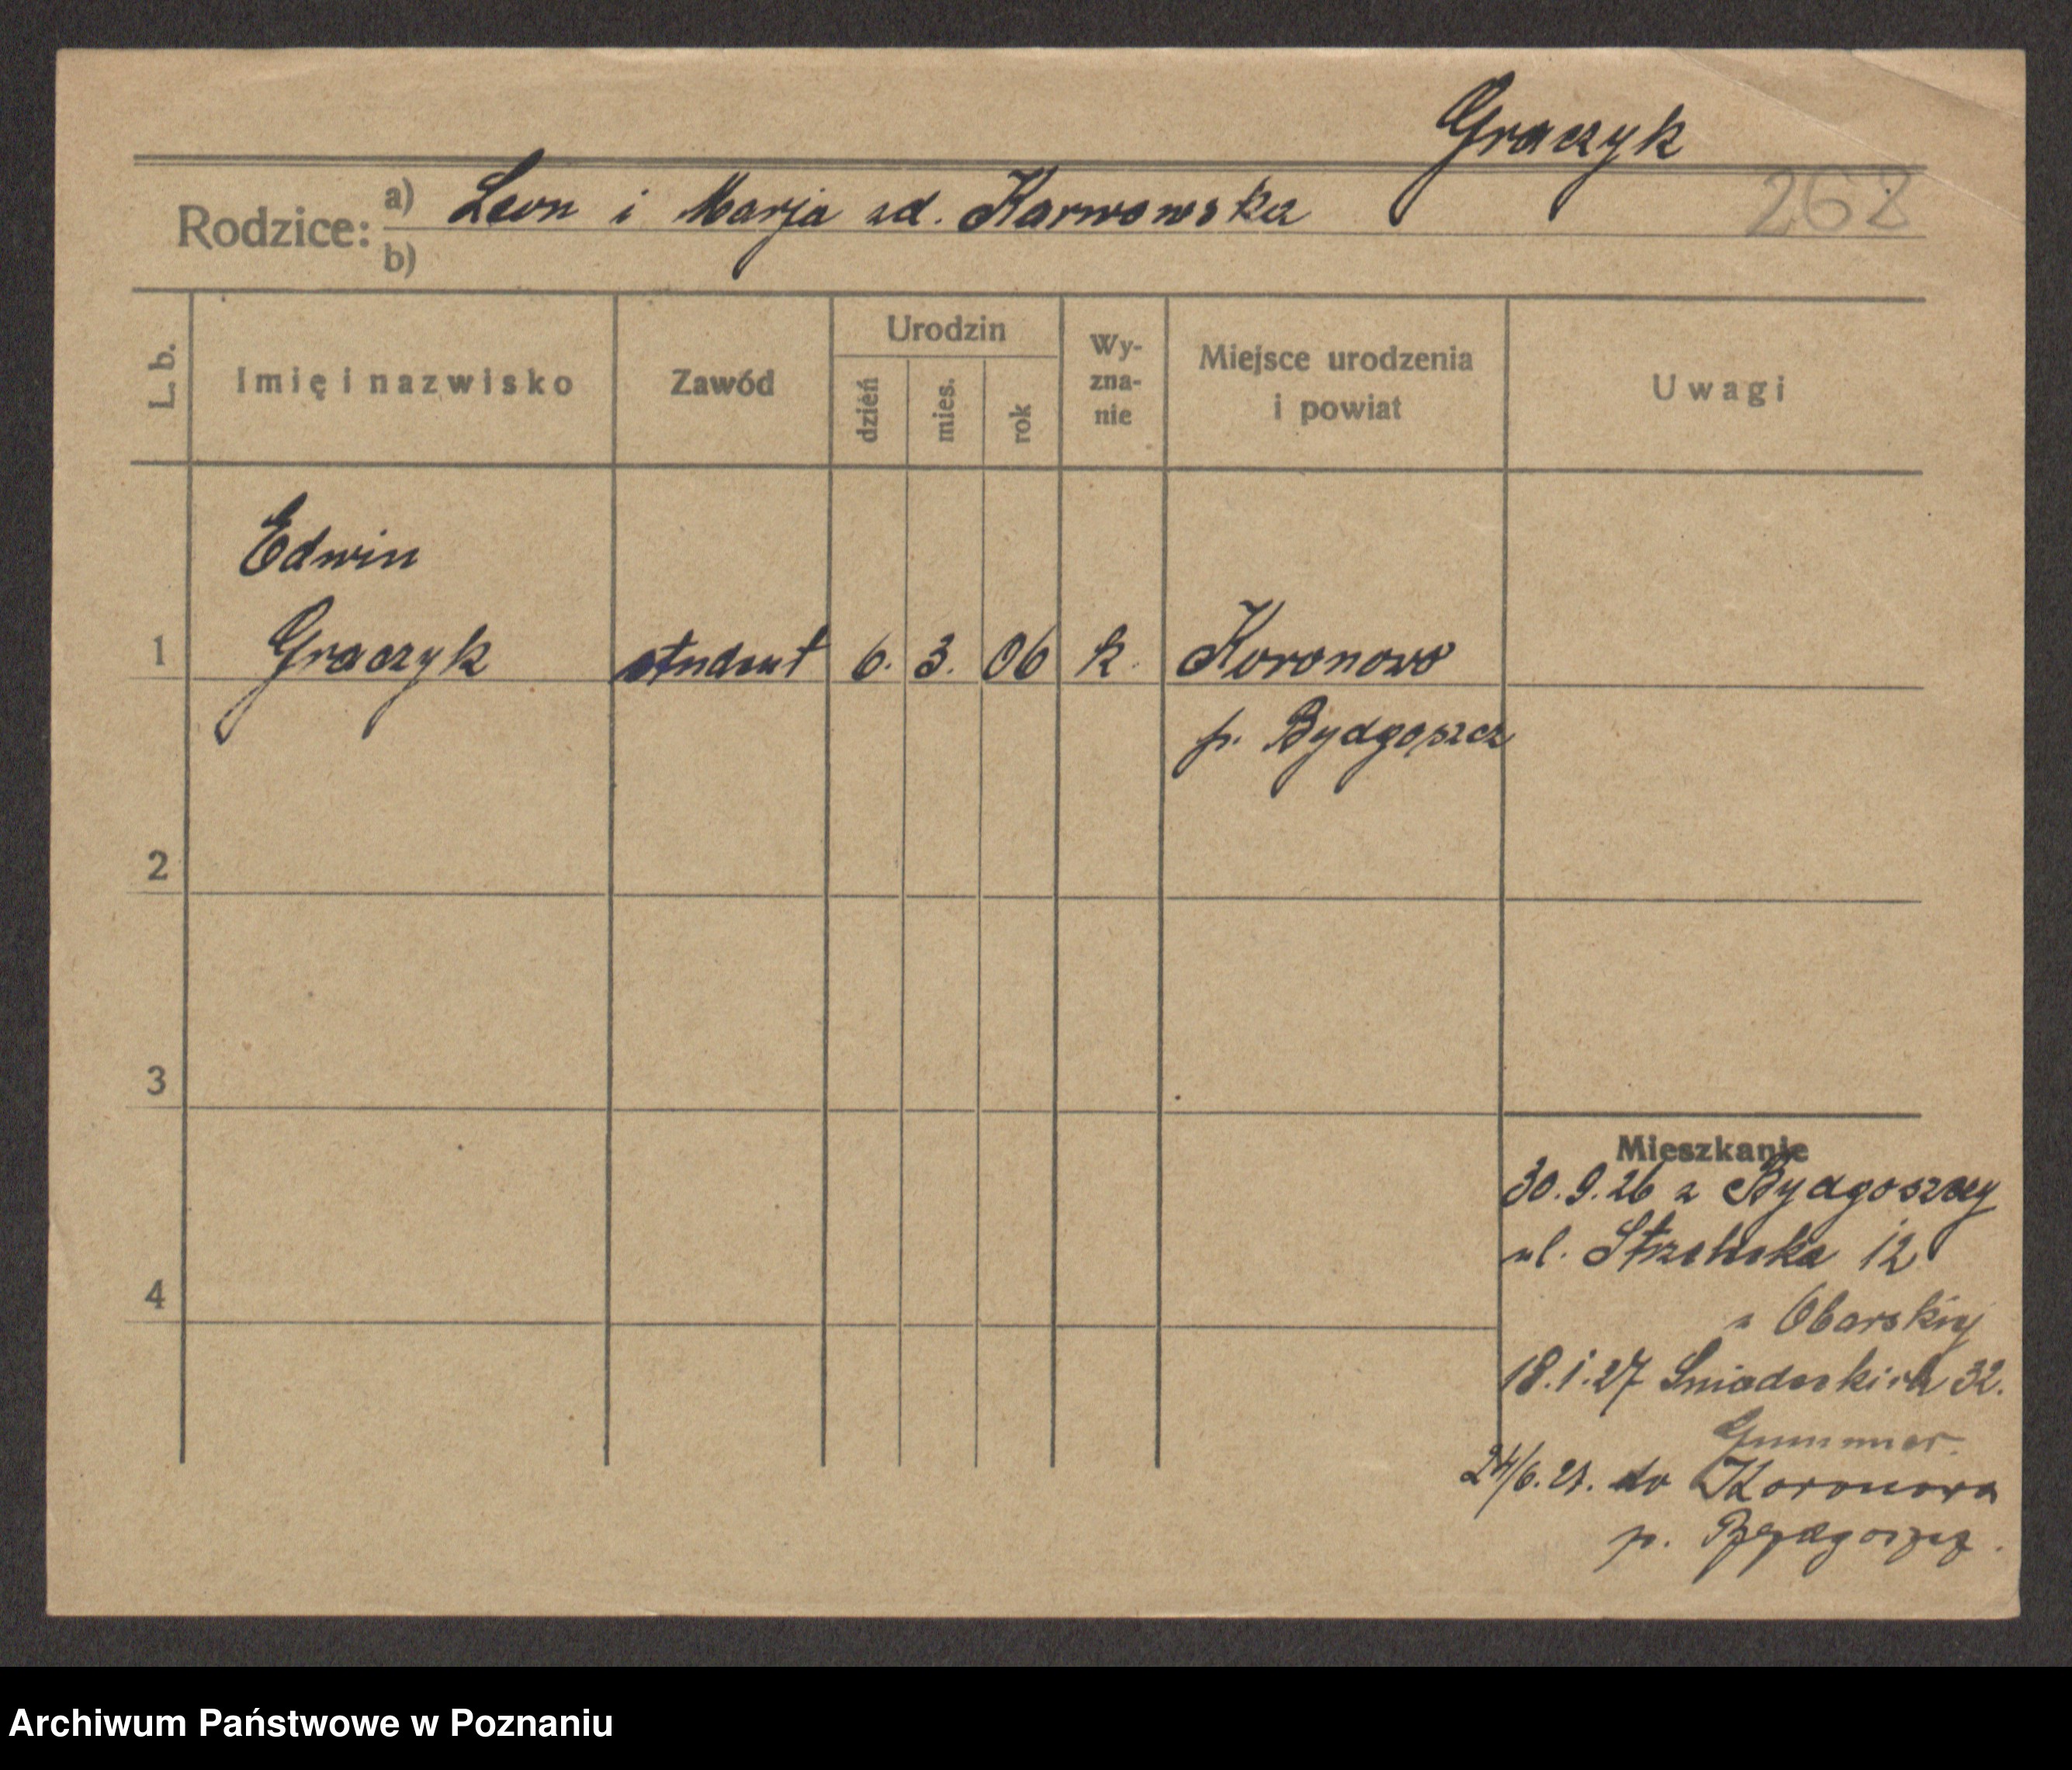 Graczyk
268
Rodzice: a) Leon i Marja zd. Karwowska
b)
L. b. Imię i nazwisko Zawód Urodzin dzień mies. rok Wy-zna-nie Miejsce urodzenia i powiat Uwagi
Edwin
1 Graczyk student 6. 3. 06 k. Koronowo
p. Bydgoszcz
2
3
Mieszkanie
30.9.26 z Bydgoszczy
ul. Strzelecka 12
4
u Obarskiej
18.1.27 Sniadeckich 32.
Gummer.
24/6.27. do Koronowa
p. Bydgoszcz.
Archiwum Państwowe w Poznaniu